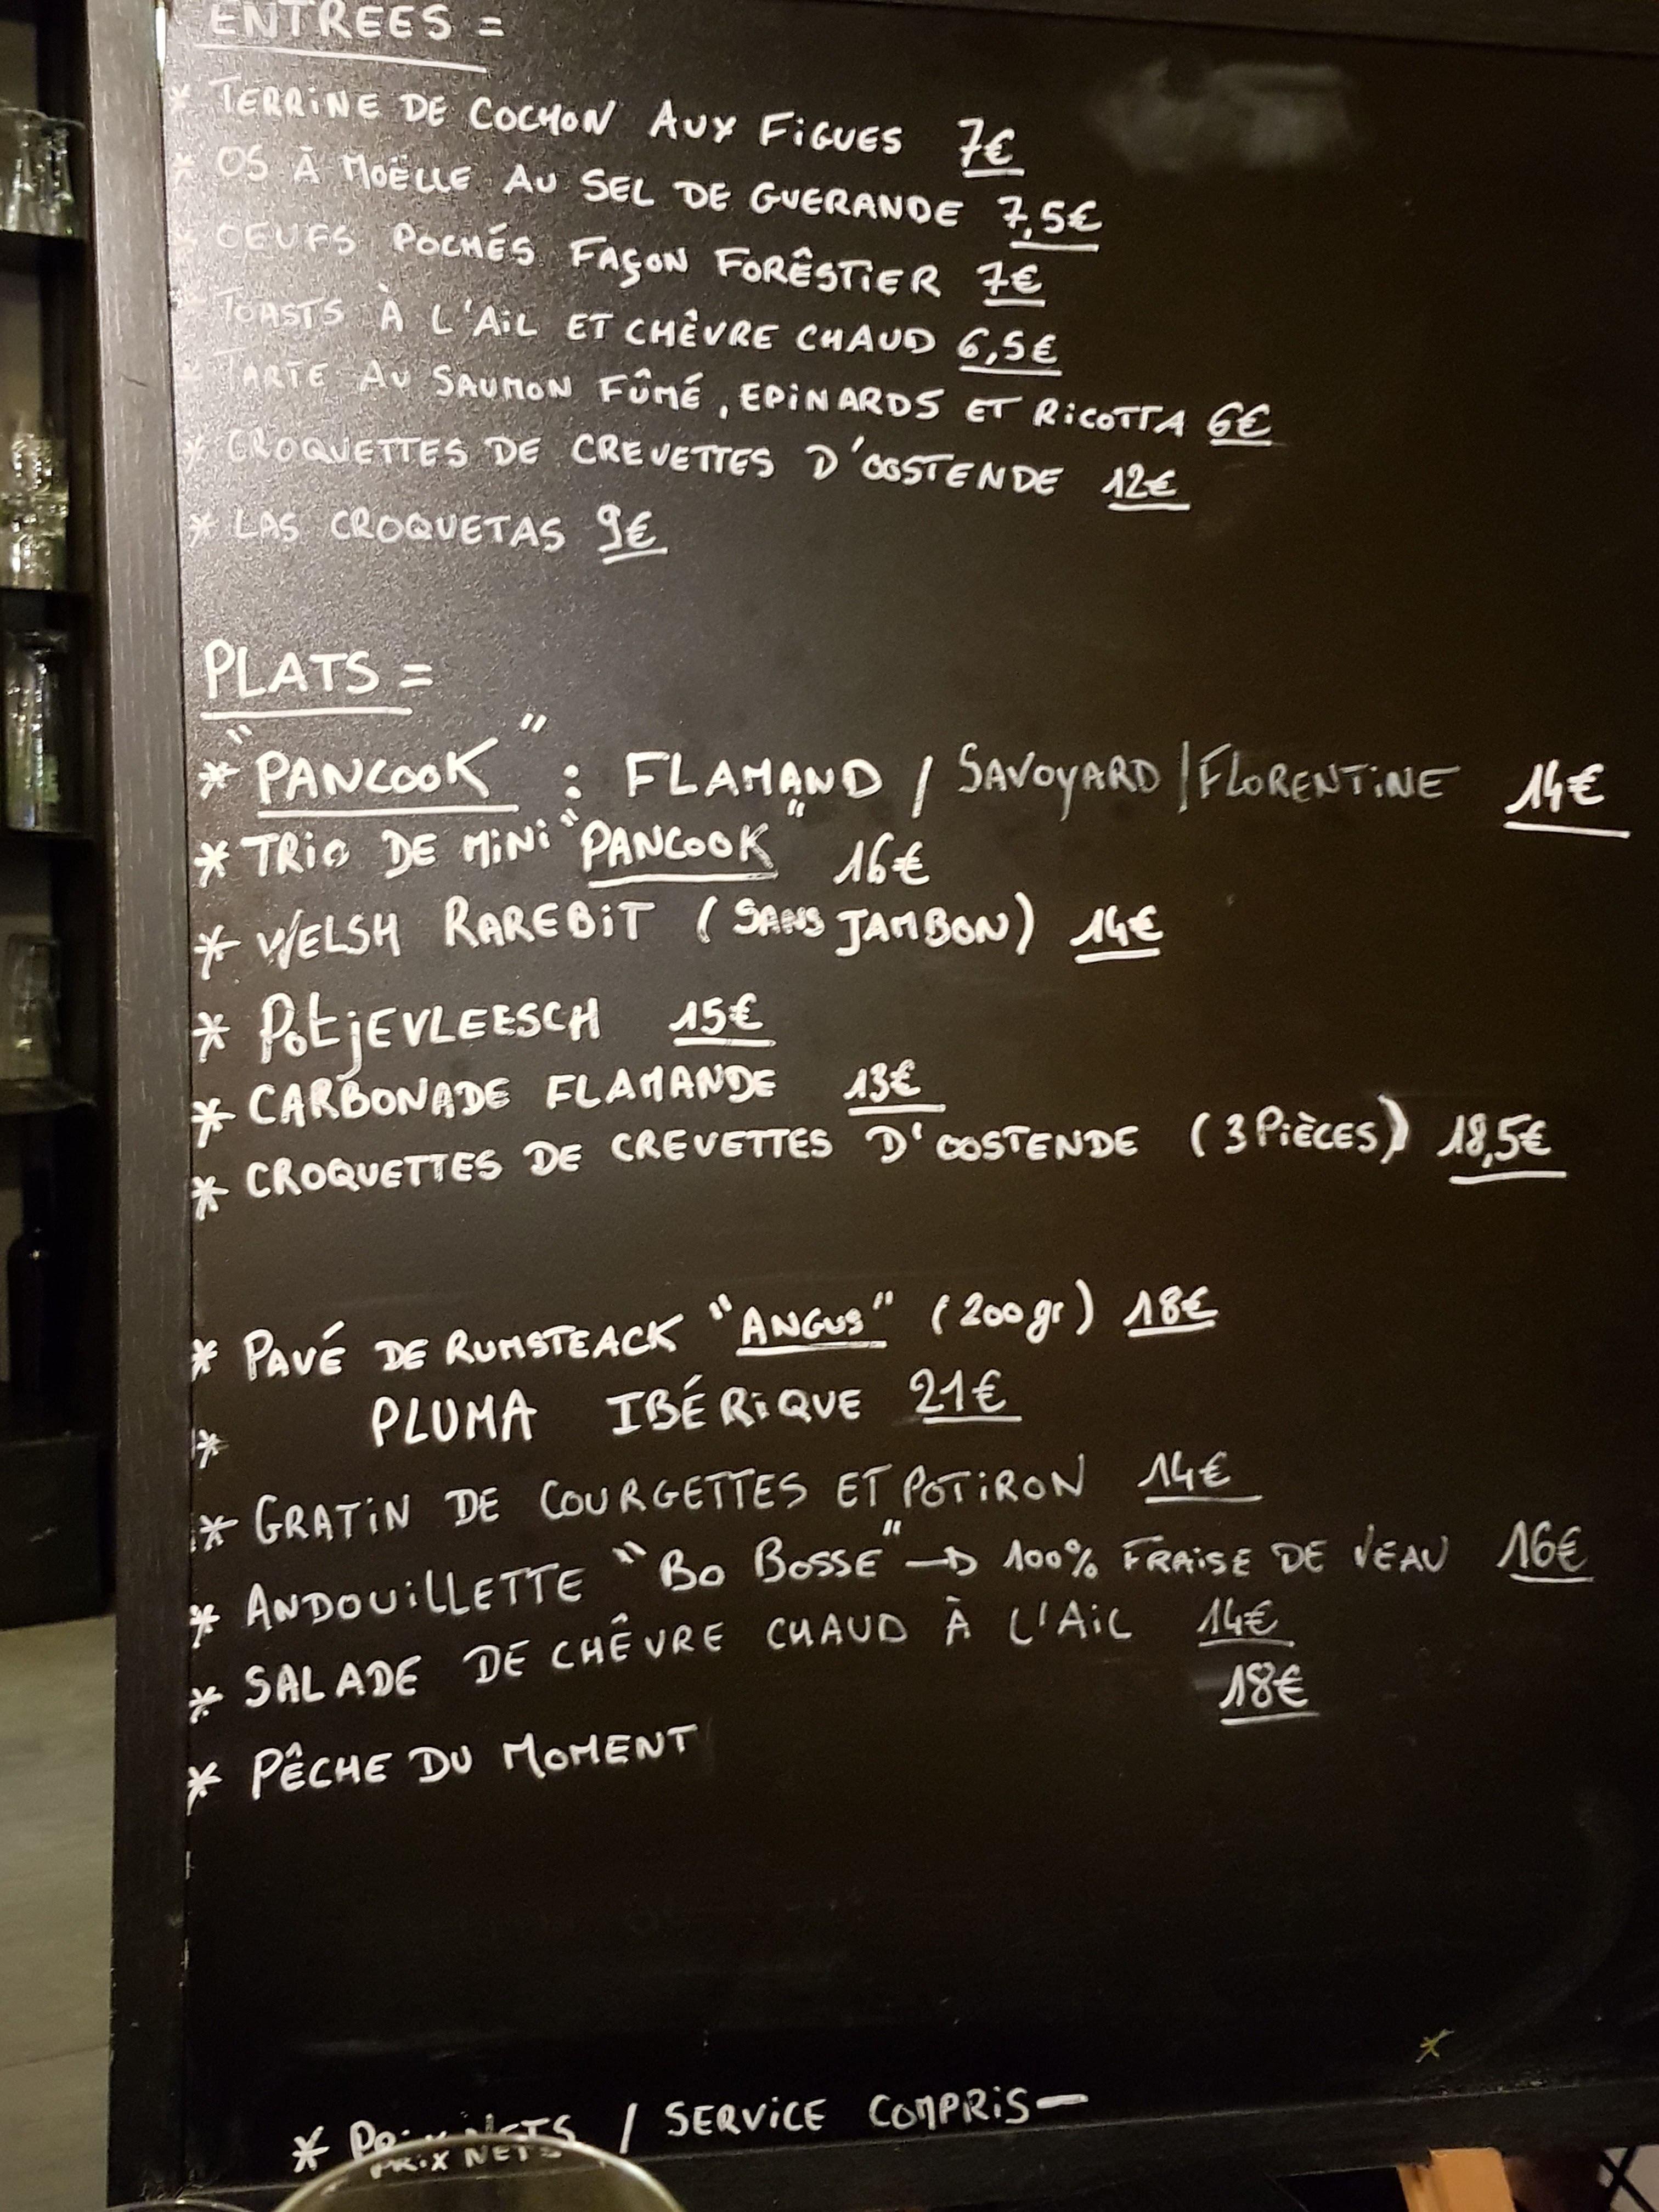 ENTREES =
* TERRINE DE COCHON AUX FIGUES 7€
* OS À MOËLLE AU SEL DE GUERANDE 7,5€
* OEUFS POCHÉS FAÇON FORÊSTIER 7€
* TOASTS À L'AIL ET CHÊVRE CHAUD 6,5€
* TARTE AU SAUMON FÛMÉ, EPINARDS ET RICOTTA 6€
* CROQUETTES DE CREVETTES D'OOSTENDE 12€
* LAS CROQUETAS 9€
PLATS =
* "PANCOOK" : FLAMAND / SAVOYARD / FLORENTINE 14€
* TRIO DE MINI "PANCOOK" 16€
* WELSH RAREBIT (SANS JAMBON) 14€
* POTJEVLEESCH 15€
* CARBONADE FLAMANDE 13€
* CROQUETTES DE CREVETTES D'OOSTENDE (3 PIÈCES) 18,5€
* PAVÉ DE RUMSTEACK "ANGUS" (200gr) 18€
* PLUMA IBÉRIQUE 21€
* GRATIN DE COURGETTES ET POTIRON 14€
* ANDOUILLETTE "BO BOSSE" → 100% FRAISE DE VEAU 16€
* SALADE DE CHÊVRE CHAUD À L'AIL 14€
* PÊCHE DU MOMENT 18€
* PRIX NETS / SERVICE COMPRIS —